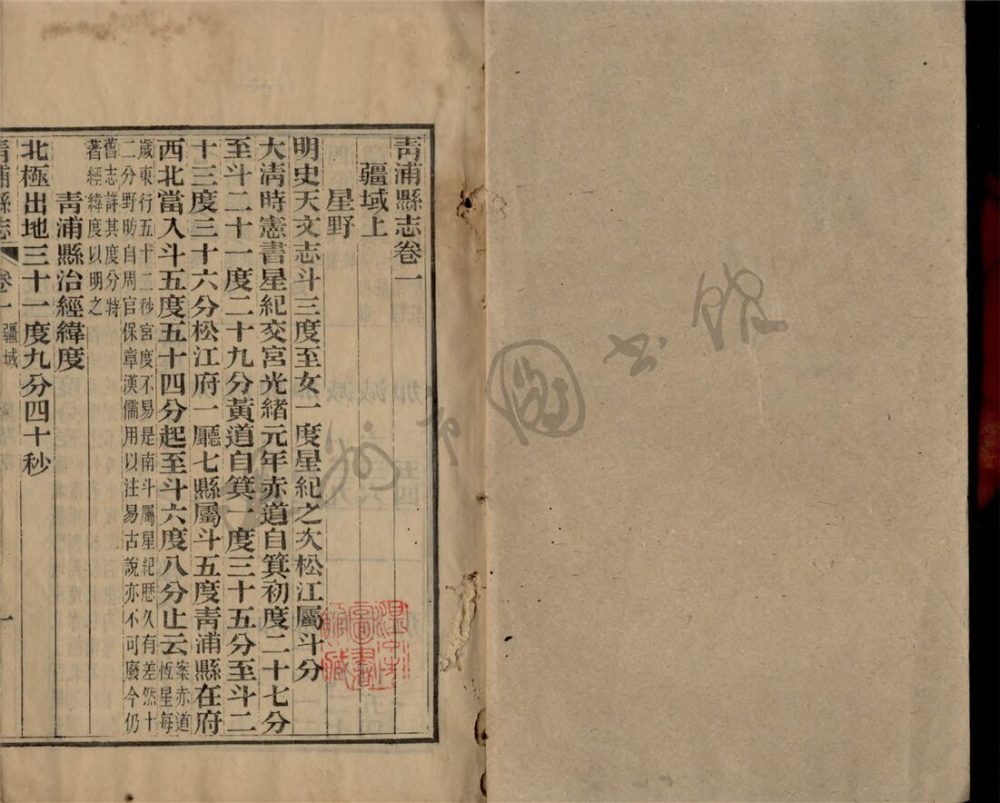 青浦縣志卷一
疆域上
星野
明史天文志斗三度至女一度星紀之次松江屬斗分
大淸時憲書星紀交宮光緒元年赤道自箕初度二十七分
至斗二十一度二十九分黃道自箕一度三十五分至斗二
十三度三十六分松江府一廳七縣屬斗五度靑浦縣在府
西北當入斗五度五十四分起至斗六度八分止云案赤道恆星每
歲東行五十二秒宮度不易是南斗屬星紀歷久有差然十
二分野昉自周官保章漢儒用以注易古說亦不可廢今仍
舊志詳其度分特
著經緯度以明之
靑浦縣治經緯度
北極出地三十一度九分四十秒
靑浦縣志 卷一 疆域 一
圖書館
市圖書館